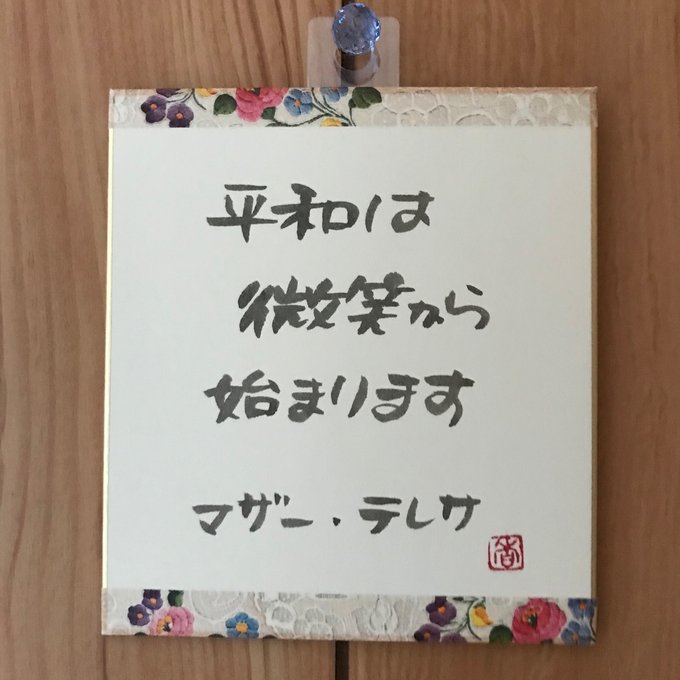 平和は
微笑から
始まります
マザー・テレサ